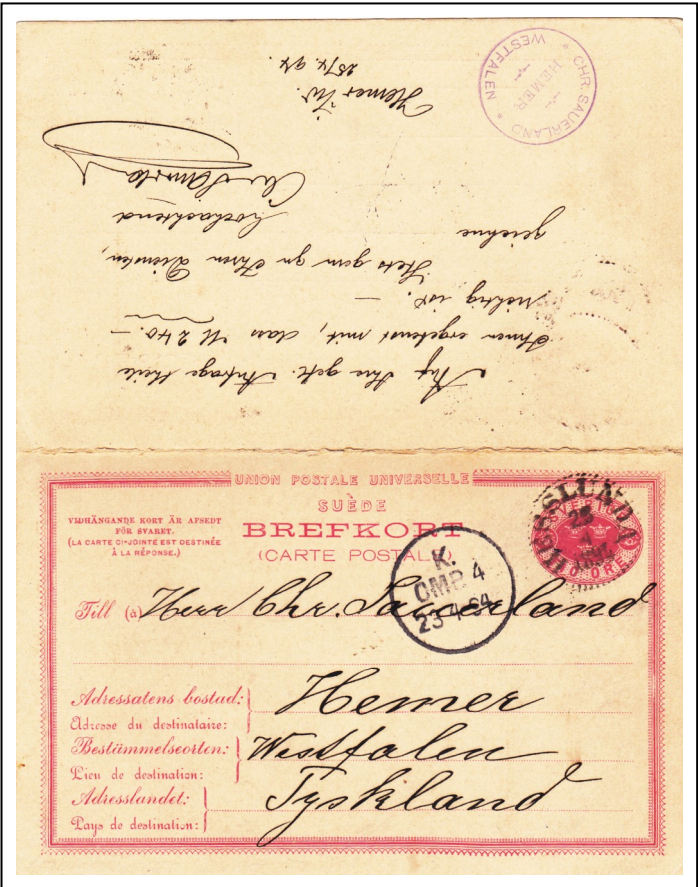 CHR. SAUERLAND
HEMER
WESTFALEN
Auf Ihre gefl. Anfrage theile
Ihnen ergebenst mit, dass 240.—
richtig ist. —
Stets gern zu Ihren Diensten,
zeichne
Hochachtend
Chr. Sauerland
Hemer i/w.
25/4. 94.
UNION POSTALE UNIVERSELLE
SUÈDE
BREFKORT
(CARTE POSTALE)
VIDHÄNGANDE KORT ÄR AFSEDT
FÖR SVARET.
(LA CARTE CI-JOINTE EST DESTINÉE
À LA RÉPONSE.)
K.
OMB 4
23 4 94
Till (à) Herr Chr. Sauerland
Adressatens bostad: Hemer
Adresse du destinataire:
Bestämmelseorten: Westfalen
Lieu de destination:
Adresslandet: Tyskland
Pays de destination: